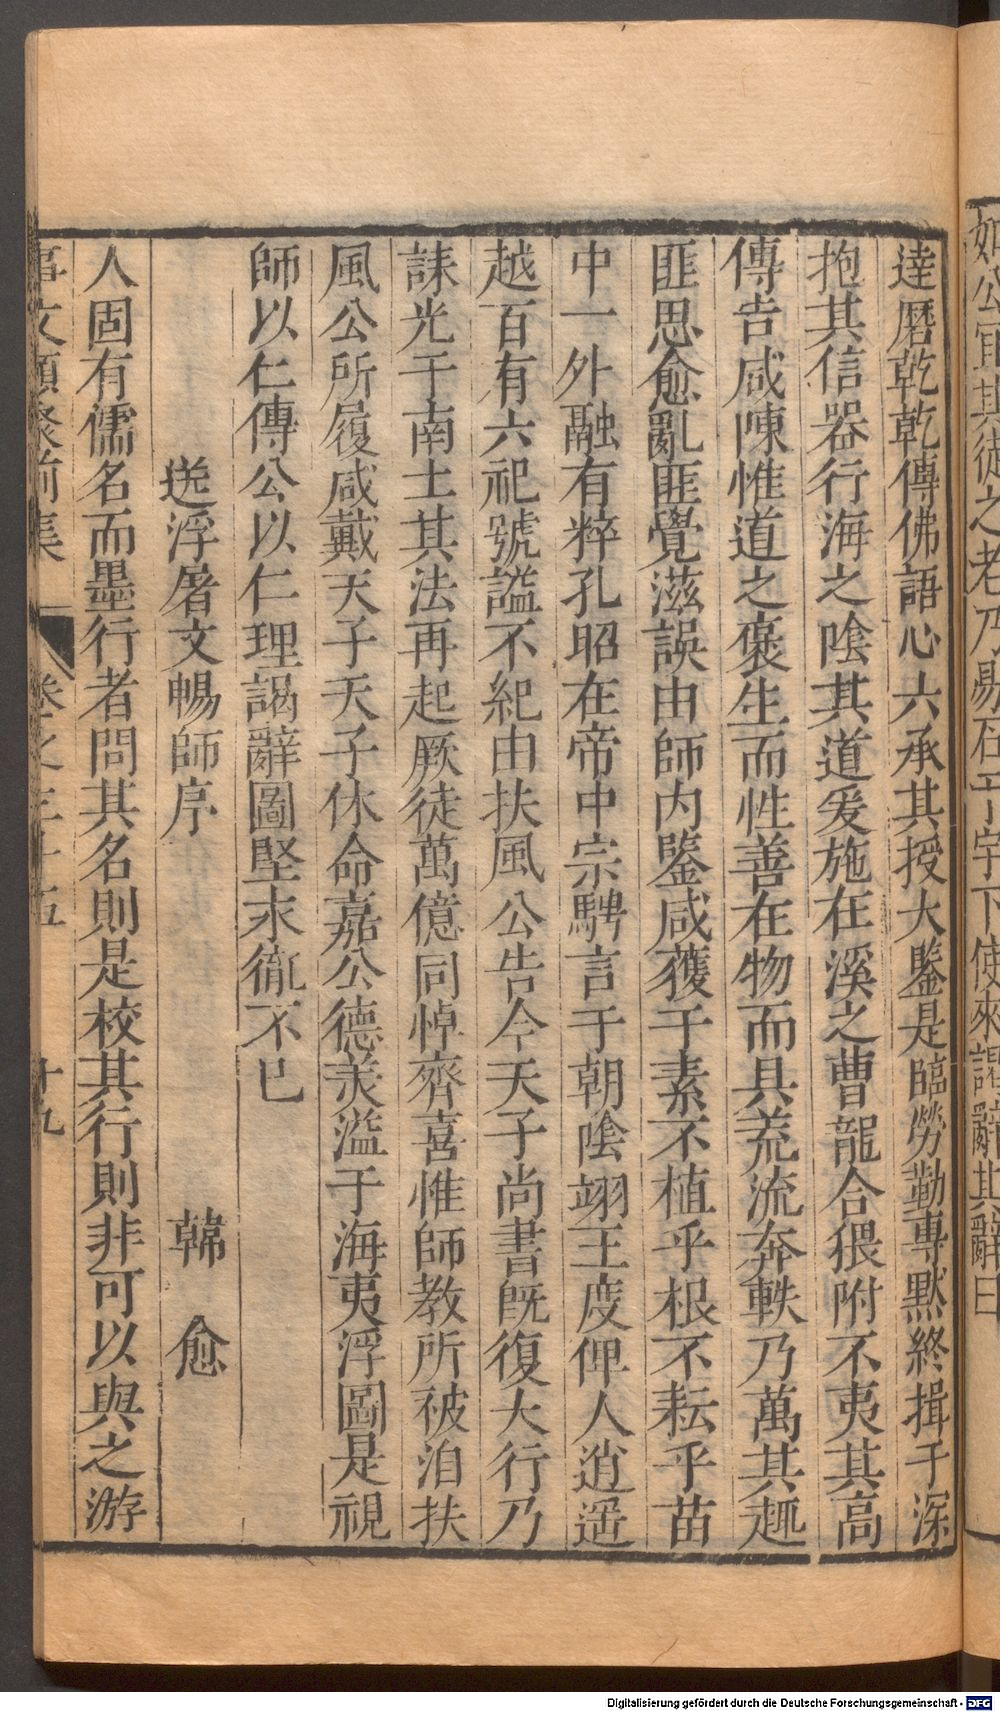 如公宜其徒之老乃易石于宇下使來謁辭其辭曰
達磨乾乾傳佛語心六承其授大鑒是臨勞勤專黙終揖于深
抱其信器行海之隂其道爰施在溪之曹龍合猥附不夷其髙
傳告咸陳惟道之褒生而性善在物而具荒流奔軼乃萬其趣
匪思愈亂匪覺滋誤由師内鑒咸獲于素不植乎根不耘乎苗
中一外融有粹孔昭在帝中宗騁言于朝隂翊王度俾人逍遥
越百有六祀號謚不紀由扶風公告今天子尚書旣復大行乃
誄光于南土其法再起厥徒萬億同悼齊喜惟師教所被洎扶
風公所履咸戴天子天子休命嘉公德美溢于海夷浮圖是視
師以仁傳公以仁理謁辭圖堅永胤不已
送浮屠文暢師序 韓愈
人固有儒名而墨行者問其名則是校其行則非可以與之游
事文類聚前集 卷之三十五 十九
Digitalisierung gefördert durch die Deutsche Forschungsgemeinschaft - DFG